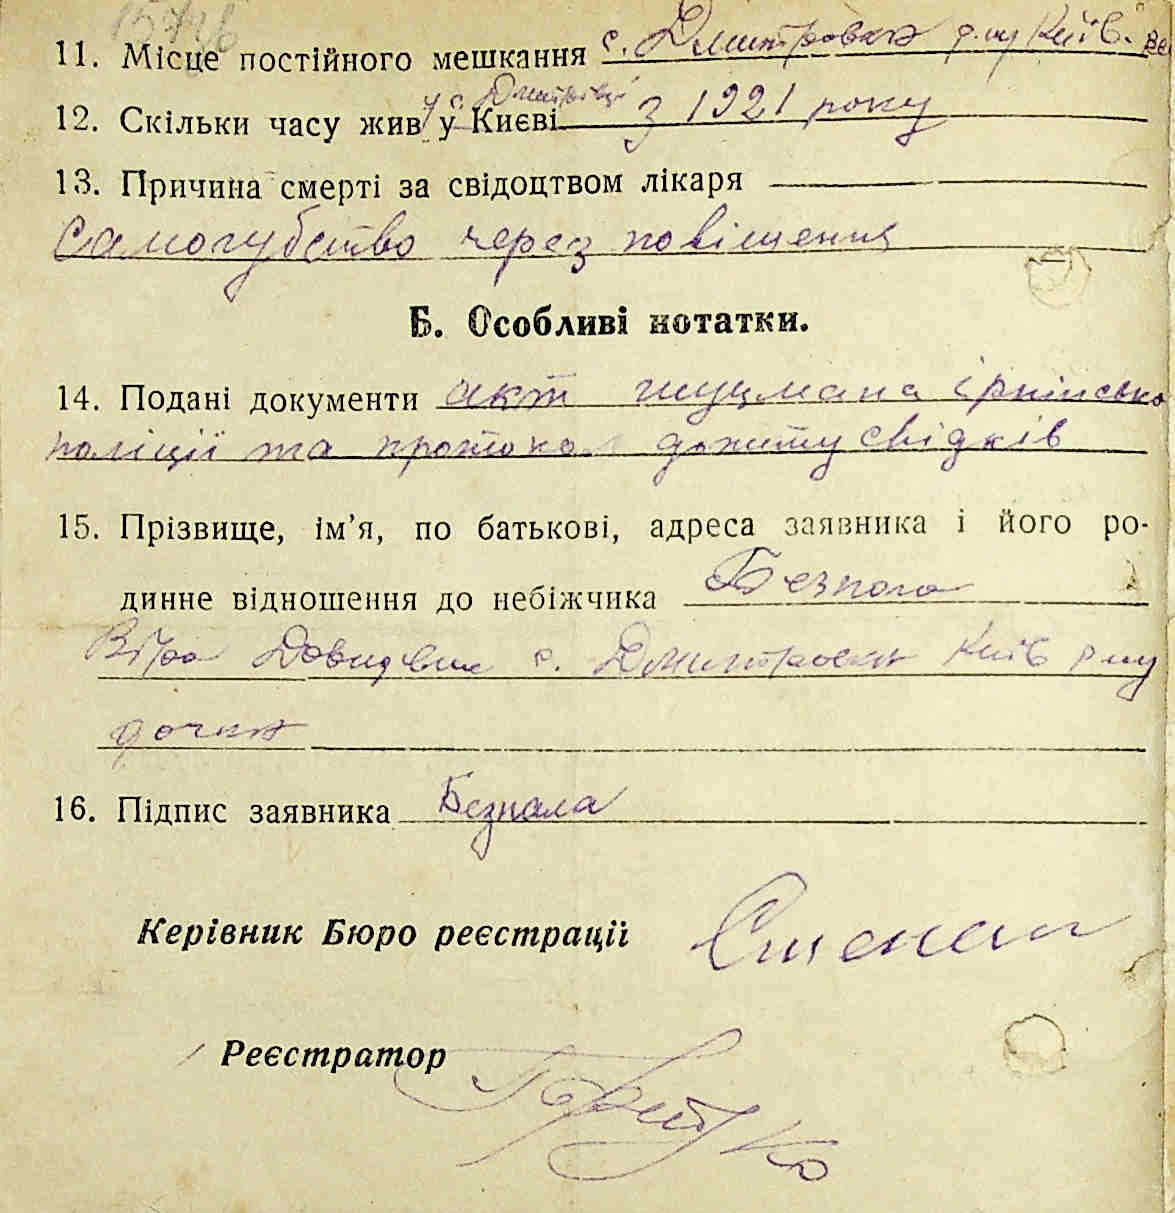 11. Місце постійного мешкання с. Дмитровка р-ну Київ.
у с. Дмитрівці
12. Скільки часу жив у Києві з 1921 року
13. Причина смерті за свідоцтвом лікаря
Самогубство через повішення
Б. Особливі нотатки.
14. Подані документи акт шуцмана ірпінсько
поліції та протокол допиту свідків
15. Прізвище, ім'я, по батькові, адреса заявника і його ро-
динне відношення до небіжчика Безпала
Віра Давидівна с. Дмитровка Київ р-ну
дочка
16. Підпис заявника Безпала
Керівник Бюро реєстрації
Реєстратор